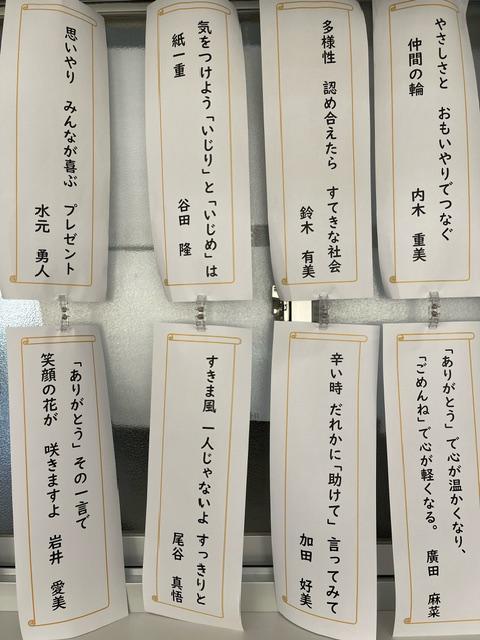 やさしさと　おもいやりでつなぐ
仲間の輪
内木　重美
多様性　認め合えたら　すてきな社会
鈴木　有美
気をつけよう「いじり」と「いじめ」は
紙一重
谷田　隆
思いやり　みんなが喜ぶ　プレゼント
水元　勇人
「ありがとう」で心が温かくなり、
「ごめんね」で心が軽くなる。
廣田　麻菜
辛い時　だれかに「助けて」　言ってみて
加田　好美
すきま風　一人じゃないよ　すっきりと
尾谷　真悟
「ありがとう」その一言で
笑顔の花が　咲きますよ
岩井　愛美